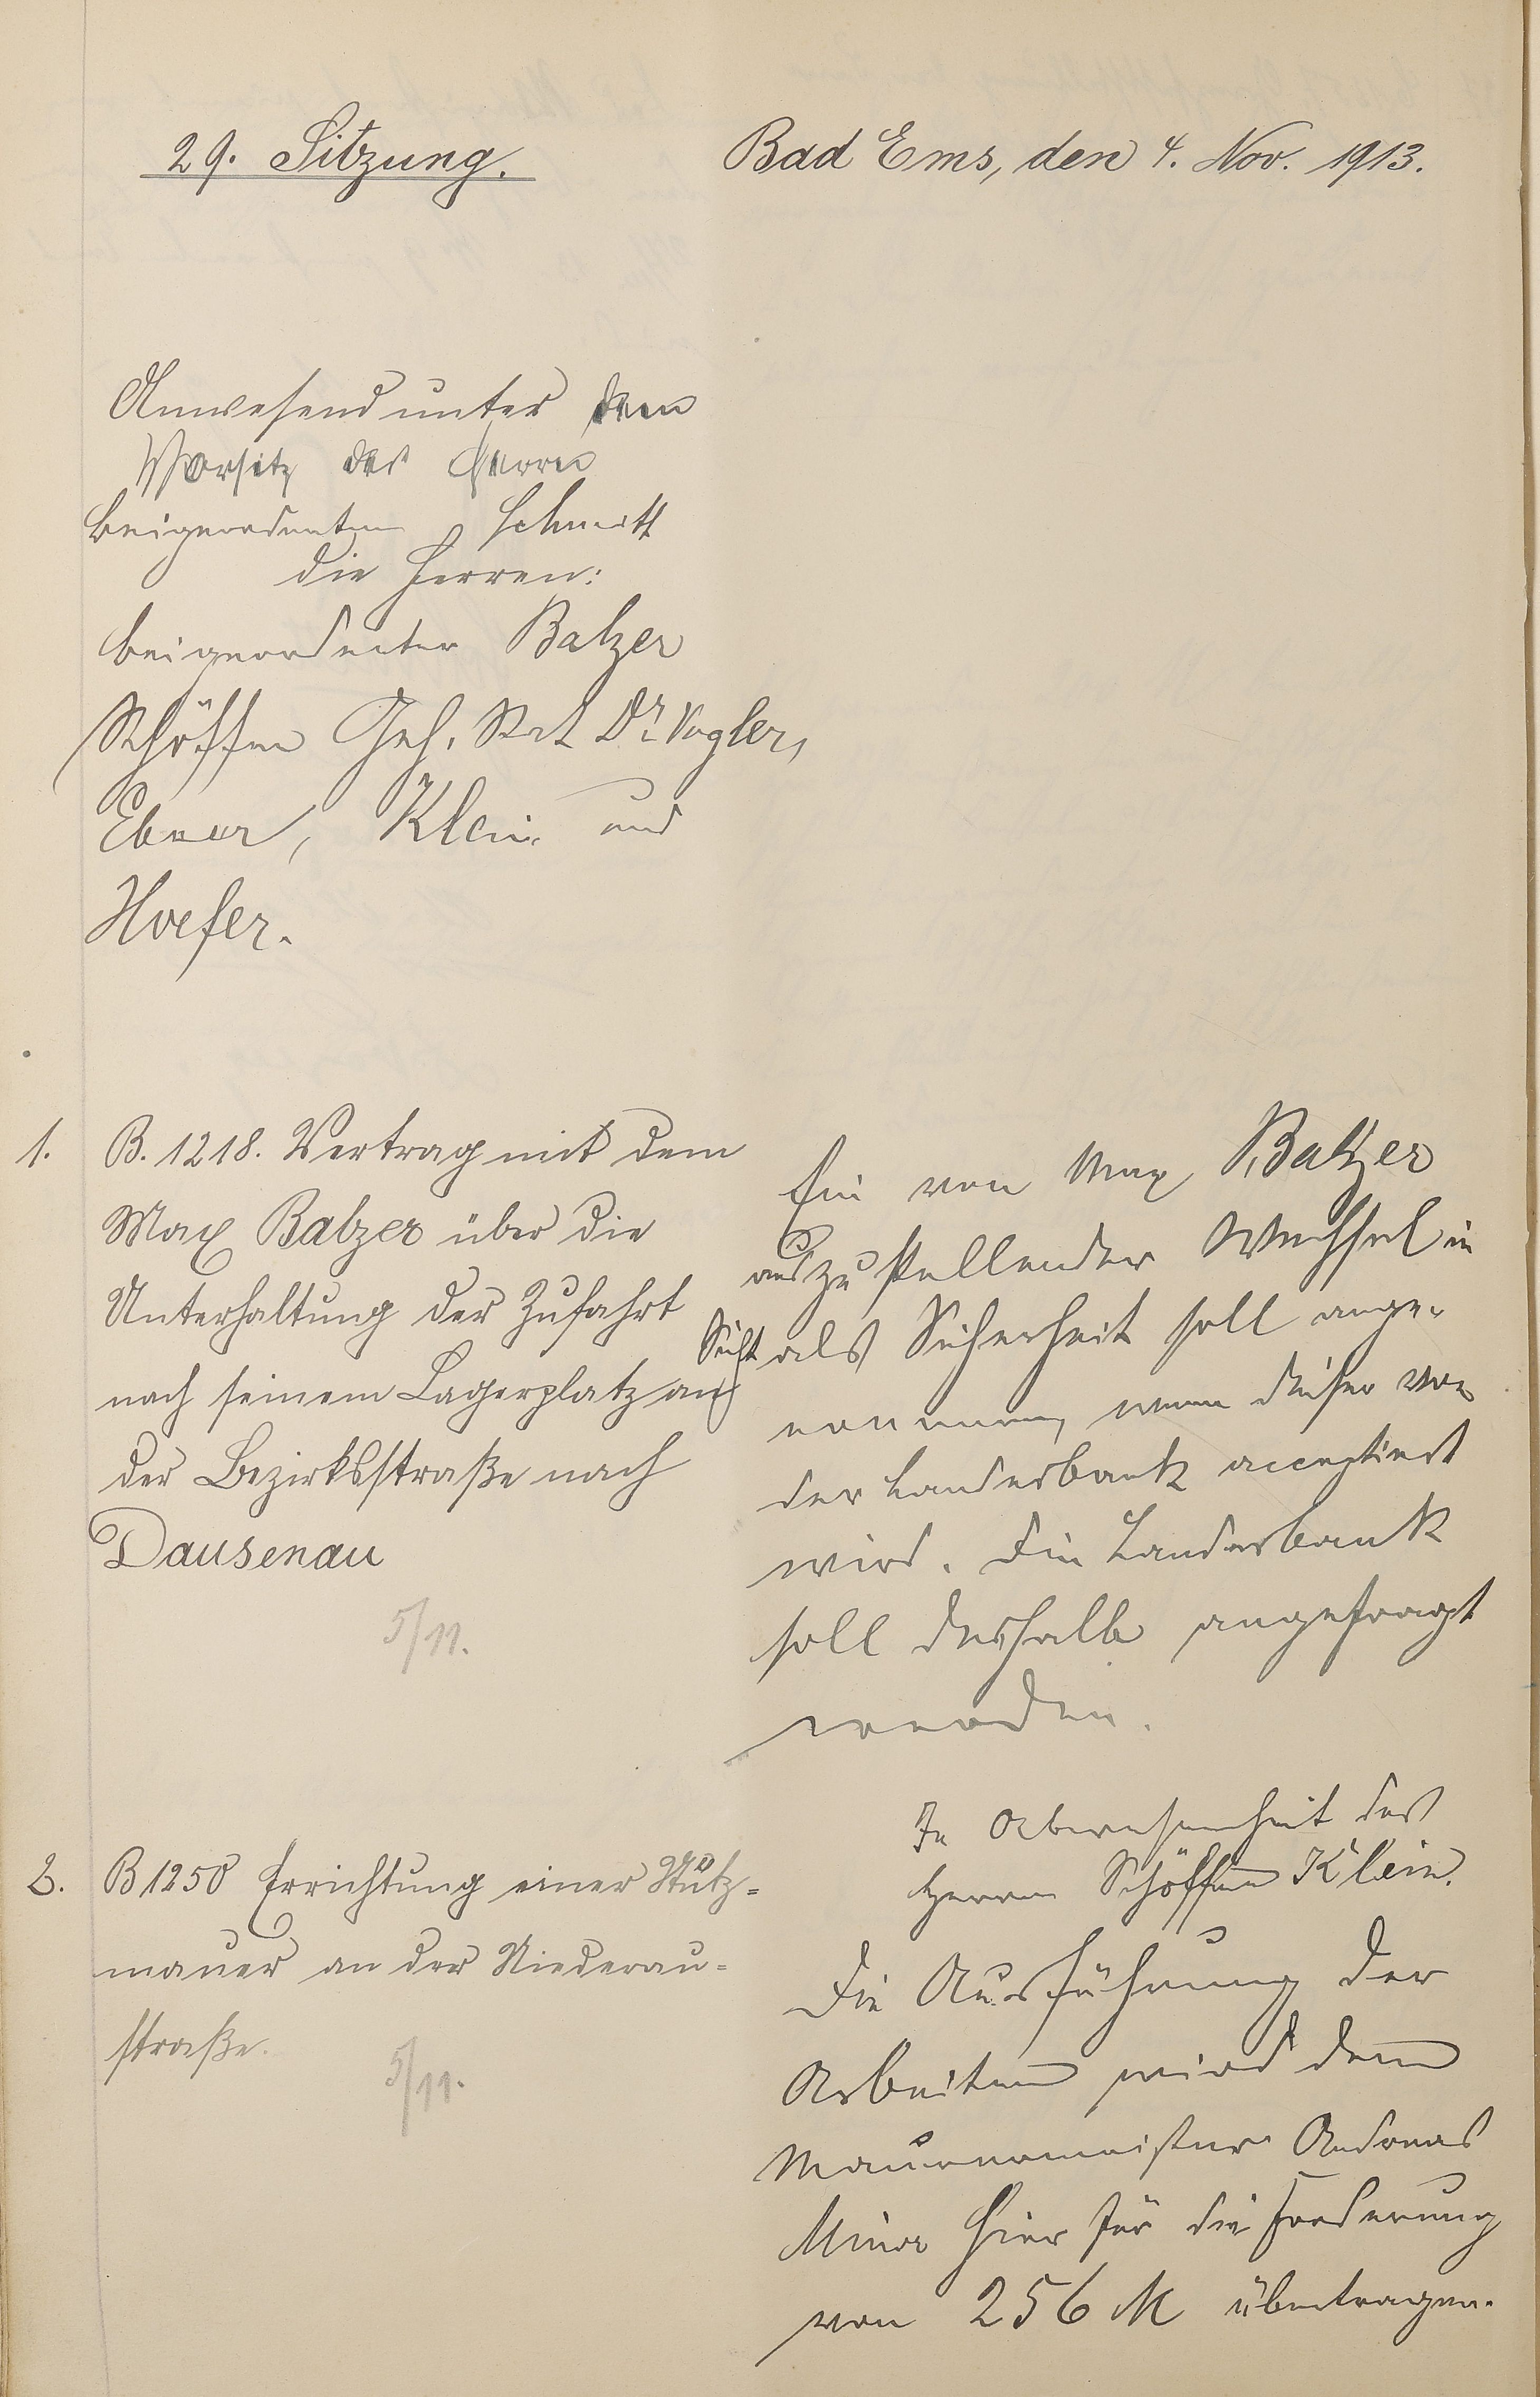 29. Sitzung.
Bad Ems, den 4. Nov. 1913.
Anwesend unter dem
Vorsitz des Herrn
Beigeordneten Schmitt
die Herren:
Beigeordneter Balzer
Schöffen Geh. Rat Dr. Vogler,
Ebner, Klein und
Hoefer.
1. B. 1218. Vertrag mit dem
Max Balzer über die
Unterhaltung der Zufahrt
nach seinem Lagerplatz an
der Bezirksstraße nach
Dausenau
5/11.
Ein von Max Balzer
auszustellender Wechsel in
Sicht als Sicherheit soll ange-
nommen, wenn dieser von
der Landesbank acceptiert
wird. Die Landesbank
soll deshalb angefragt
werden.
2. B 1250 Errichtung einer Stütz-
mauer an der Niederau-
straße.
5/11.
In Abwesenheit des
Herrn Schöffen Klein.
Die Ausführung der
Arbeiten wird dem
Maurermeister Andreas
Minor hier für die Forderung
von 256 M übertragen.